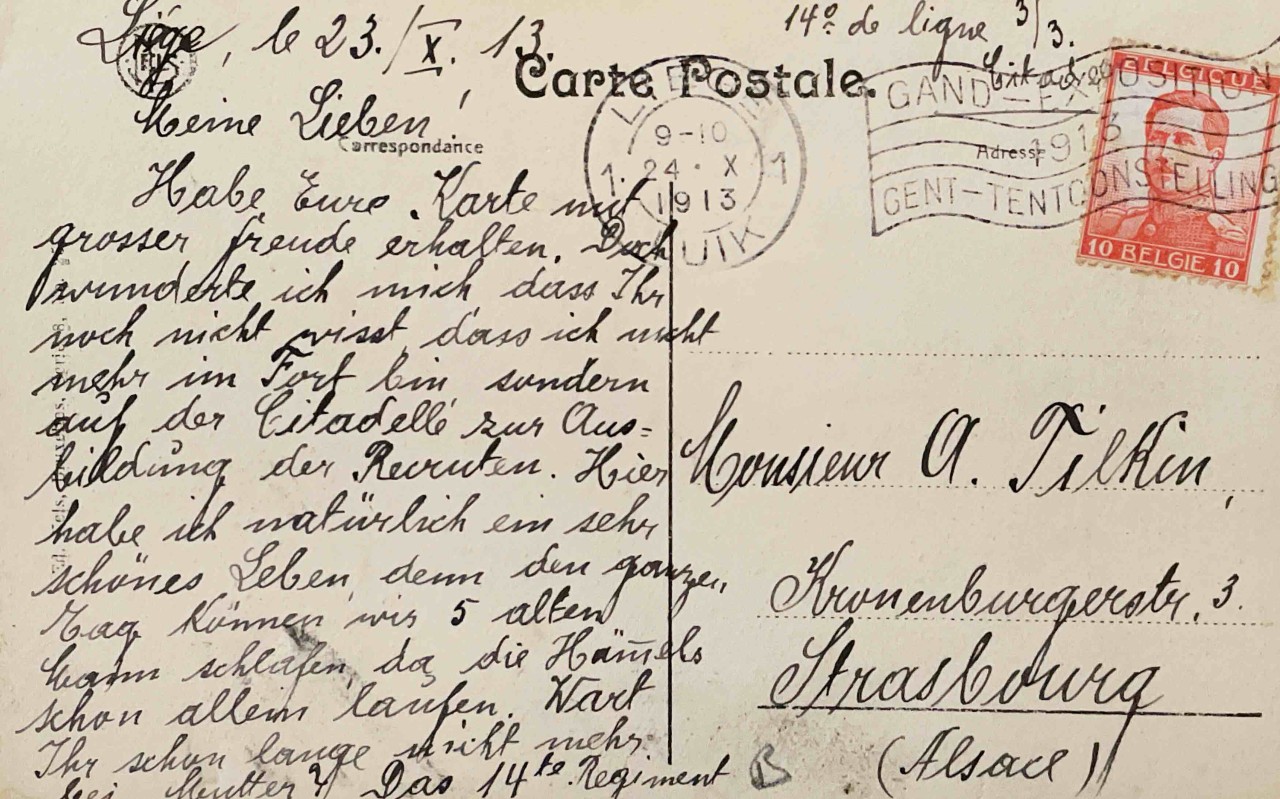 Liége, le 23./X. 13.
14e de ligne 3/3.
Carte Postale.
Citadelle
Meine Lieben,
Correspondance
Adresse
Habe Eure Karte mit
grosser freude erhalten. Doch
wunderte ich mich dass Ihr
noch nicht wisst dass ich nicht
mehr im Fort bin sondern
auf der Citadelle zur Aus=
bildung der Recruten. Hier
habe ich natürlich ein sehr
schönes Leben, denn den ganzen
Tag können wir 5 alten
schlafen, da die Häm̅els
schon allein laufen. Wart
Ihr schon lange nicht mehr
bei Mutter? Das 14te Regiment
Monsieur A. Tilkin,
Kronenburgerstr. 3.
Strasbourg
(Alsace)
B
9-10
1 24 · X 1
1913
LUIK
GAND-EXPOSITION
1913
GENT-TENTOONSTELLING
BELGIQUE
10 BELGIE 10